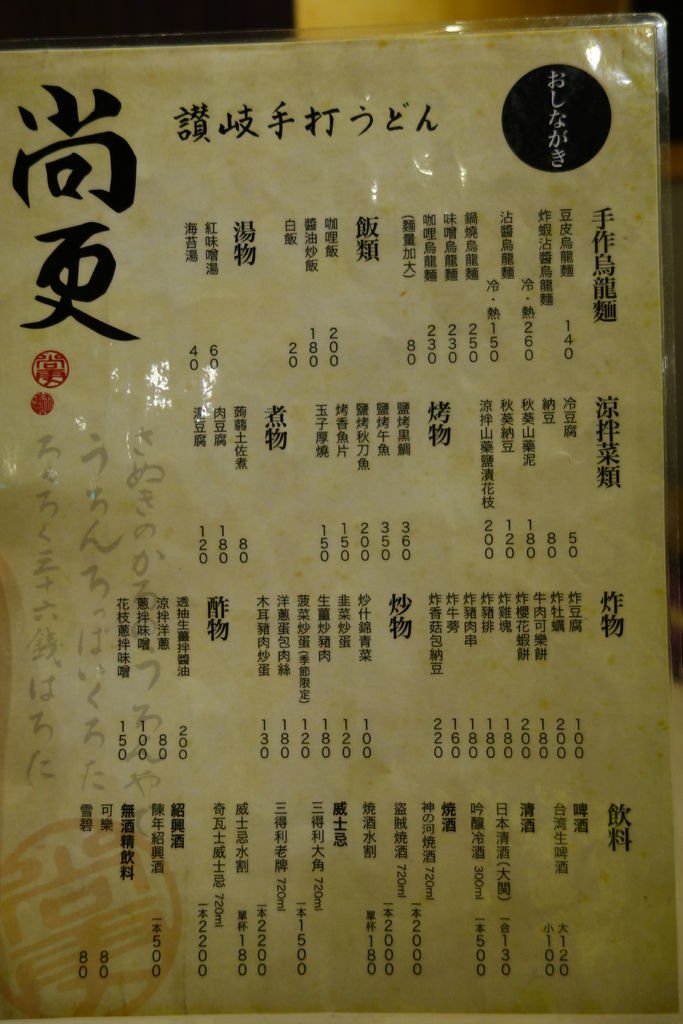 おしながき
讃岐手打うどん
尚更
手作烏龍麵
豆皮烏龍麵 140
炸蝦沾醬烏龍麵 冷・熱260
沾醬烏龍麵 冷・熱150
鍋燒烏龍麵 250
味噌烏龍麵 230
咖哩烏龍麵 230
(麵量加大) 80
飯類
咖哩飯 200
醬油炒飯 180
白飯 20
湯物
紅味噌湯 60
海苔湯 40
涼拌菜類
冷豆腐 50
納豆 80
秋葵山藥泥 180
秋葵納豆 120
涼拌山藥鹽漬花枝 200
烤物
鹽烤黑鯛 360
鹽烤午魚 350
鹽烤秋刀魚 200
烤香魚片 150
玉子厚燒 150
煮物
蒟蒻土佐煮 80
肉豆腐 180
湯豆腐 120
炸物
炸豆腐 100
炸牡蠣 200
牛肉可樂餅 180
炸櫻花蝦餅 200
炸雞塊 180
炸豬排 180
炸豬肉串 180
炸牛蒡 160
炸香菇包納豆 220
炒物
炒什錦青菜 100
韭菜炒蛋 120
生薑炒豬肉 180
菠菜炒蛋(季節限定) 120
洋蔥蛋包肉絲 180
木耳豬肉炒蛋 130
酢物
透抽生薑拌醬油 200
涼拌洋蔥 80
蔥拌味噌 100
花枝蔥拌味噌 150
飲料
啤酒
台湾生啤酒 大120 小100
清酒
日本清酒(大関) 一合130
吟釀冷酒 300ml 一本500
燒酒
神の河燒酒 720ml 一本2000
盜賊燒酒 720ml 一本2000
燒酒水割 單杯180
威士忌
三得利大角 720ml 一本1500
三得利老牌 720ml 一本2200
威士忌水割 單杯180
奇瓦士威士忌 720ml 一本2200
紹興酒
陳年紹興酒 一本500
無酒精飲料
可樂 80
雪碧 80